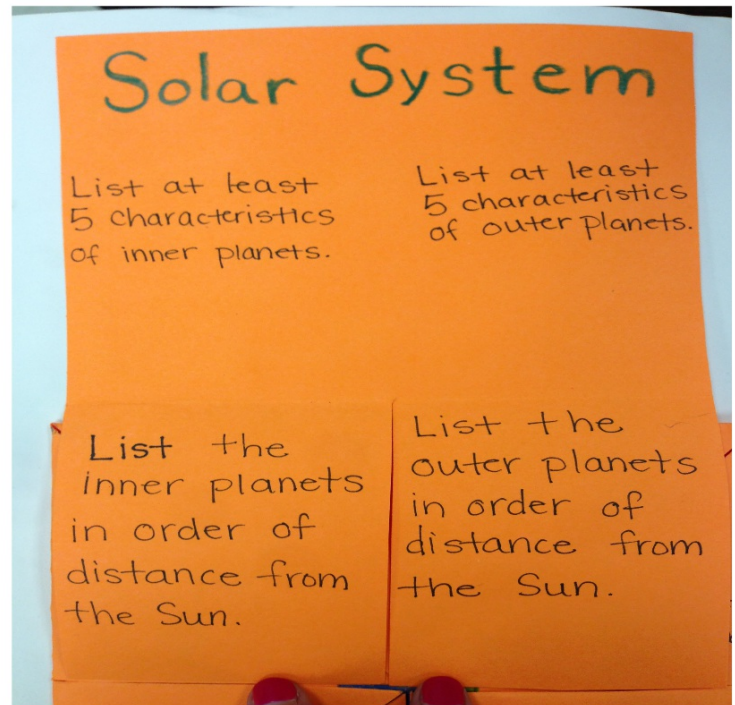 Solar System
List at least
5 characteristics
of inner planets.
List at least
5 characteristics
of outer planets.
List the
inner planets
in order of
distance from
the Sun.
List the
outer planets
in order of
distance from
the Sun.